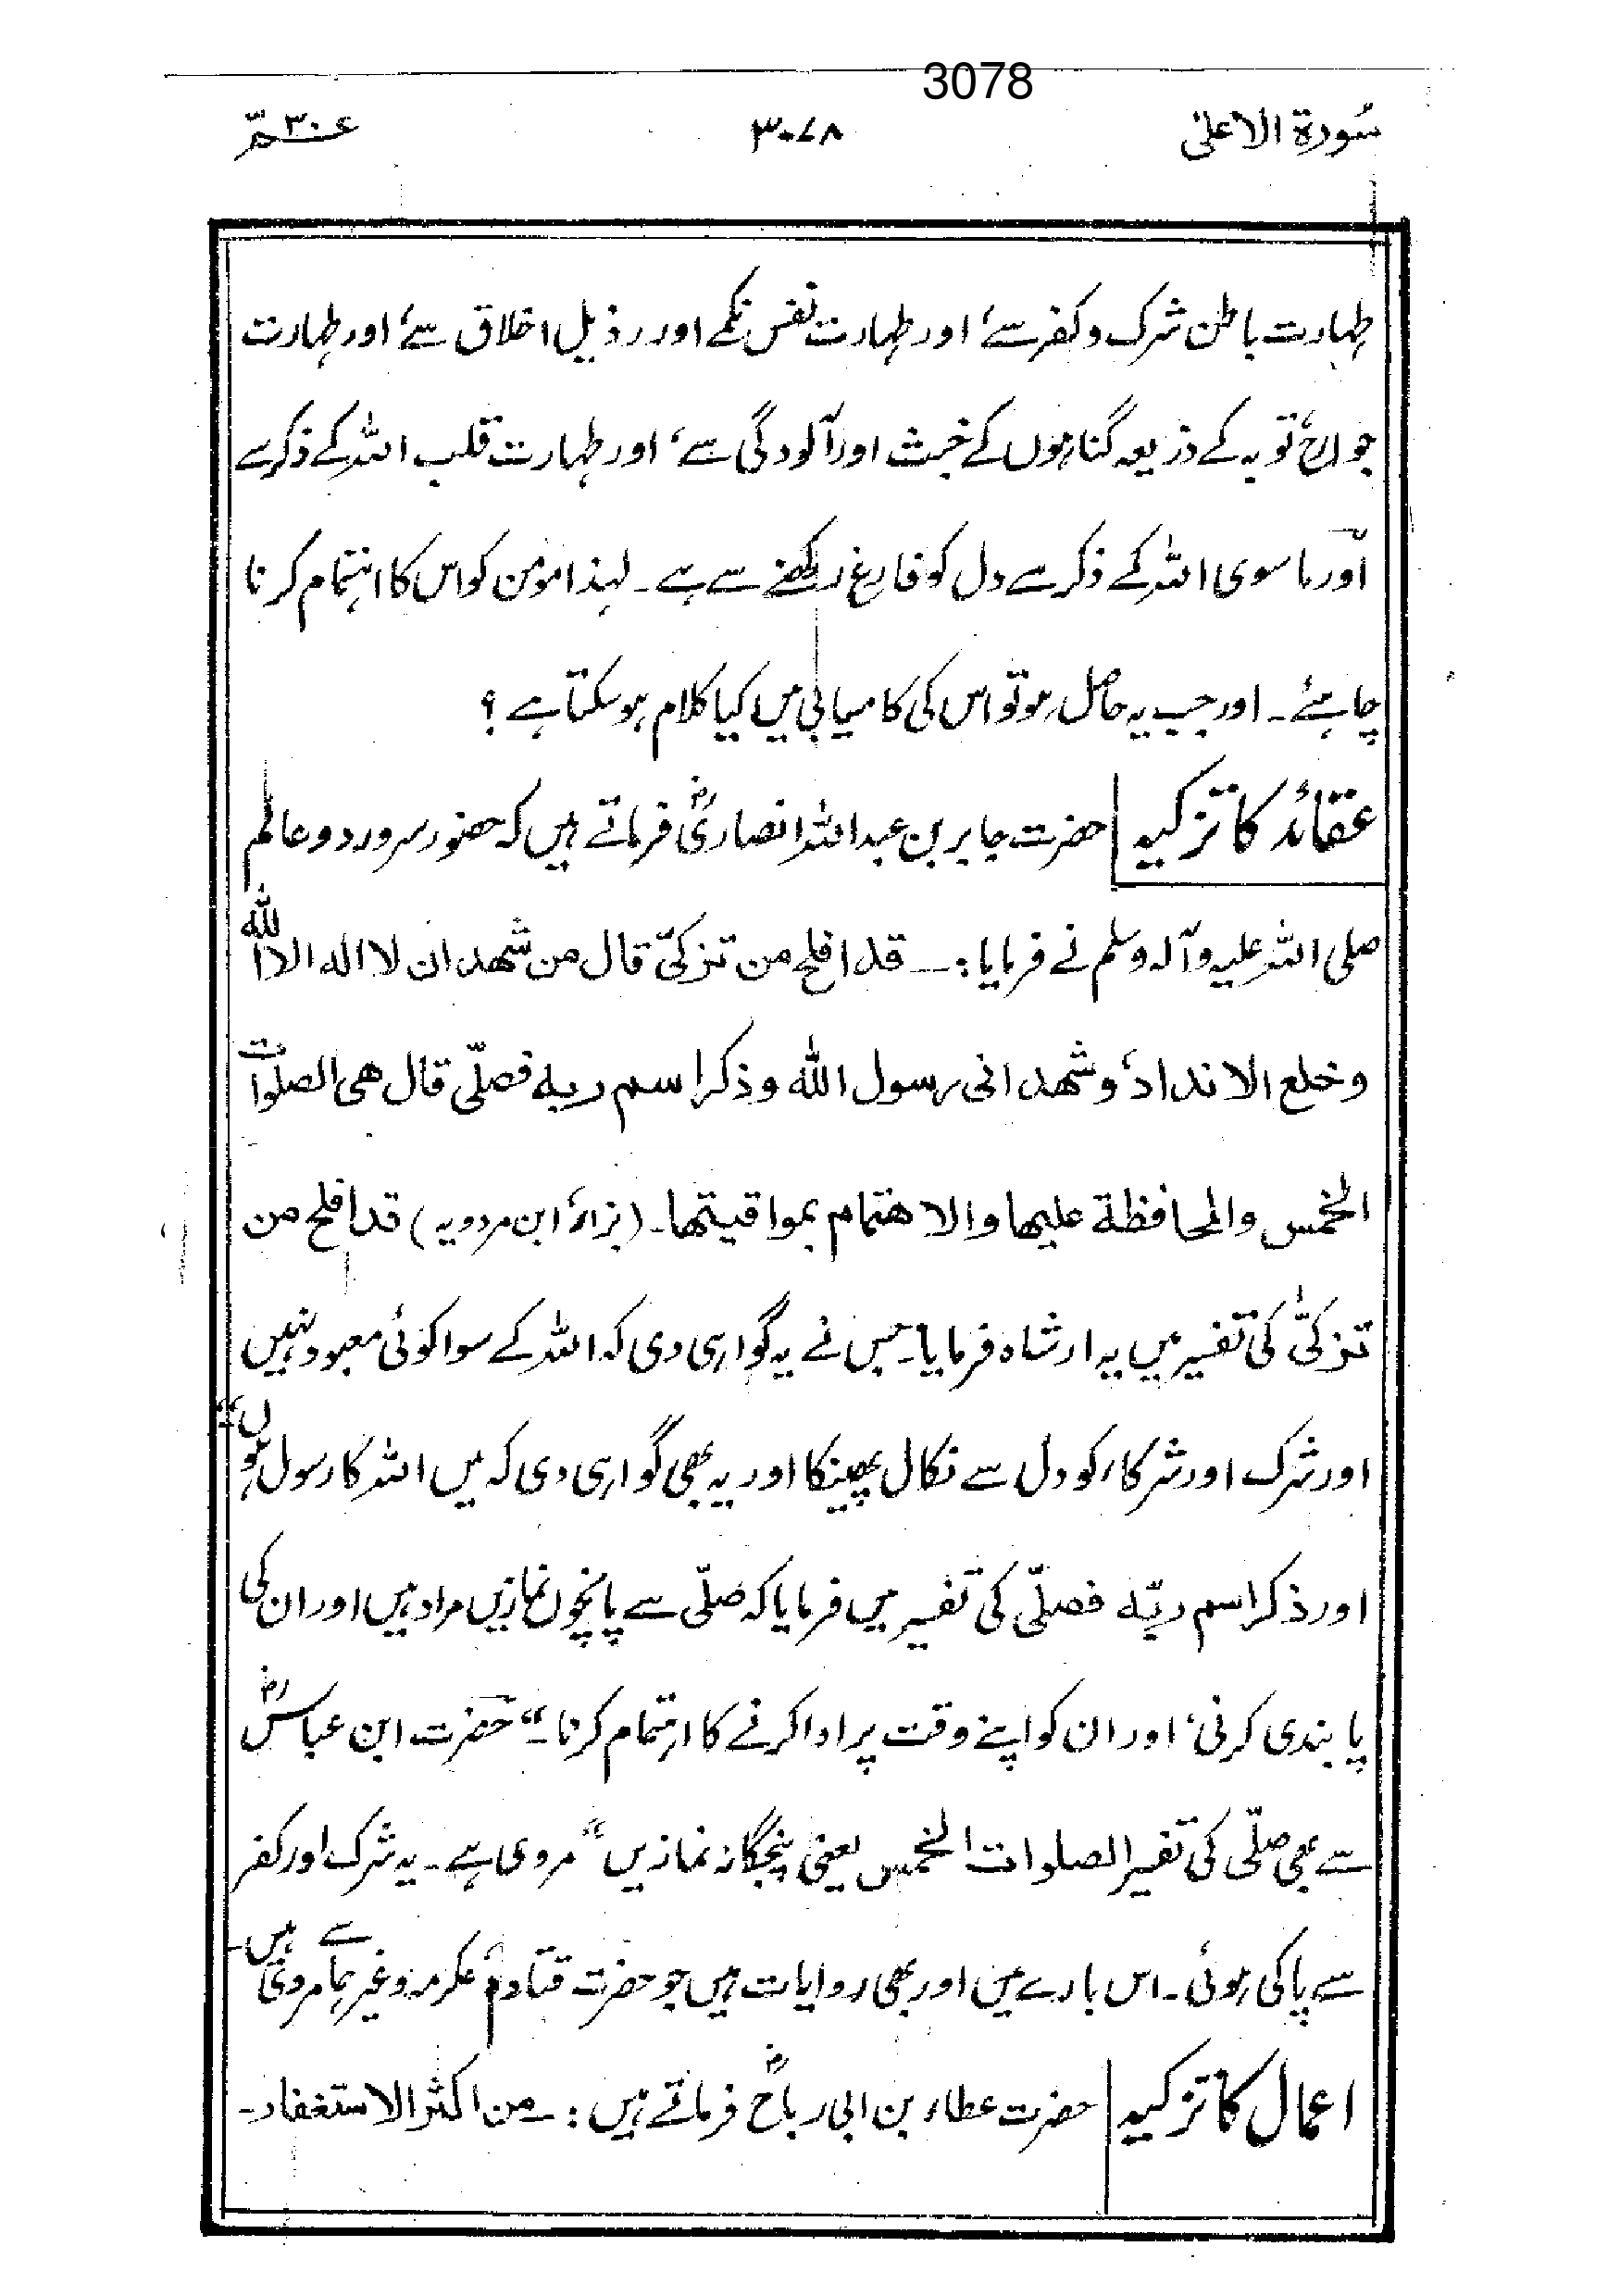 3078
سُورة الاعلیٰ ۳۰۷۸ عـــم ۳۰
طہارت باطن شرک و کفر سے، اور طہارت نفس نکمے اور رذیل اخلاق سے، اور طہارت
جوارح، توبہ کے ذریعہ گناہوں کے خبث اور آلودگی سے، اور طہارت قلب اللہ کے ذکر سے
اور ما سوی اللہ کے ذکر سے دل کو فارغ رکھنے سے ہے۔ لہذا مومن کو اس کا اہتمام کرنا
چاہئے۔ اور جب یہ حاصل ہو تو اس کی کامیابی میں کیا کلام ہو سکتا ہے ؟
عقائد کا تزکیہ حضرت جابر بن عبداللہ انصاریؓ فرماتے ہیں کہ حضور سرور دو عالم
صلی اللہ علیہ وآلہ وسلم نے فرمایا :۔ قد افلح من تزکیّٰ قال من شھد ان لا الہ الا اللہ
وخلع الانداد، و شھد انی رسول اللہ و ذکر اسم ربہ فصلّی قال ھی الصلوات
الخمس والمحافظة علیھا والاھتمام بمواقیتھا۔ (بزار، ابن مردویہ) قد افلح من
تزکیّٰ کی تفسیر میں یہ ارشاد فرمایا۔ جس نے یہ گواہی دی کہ اللہ کے سوا کوئی معبود نہیں
اور شرک اور شرکاء کو دل سے نکال پھینکا اور یہ بھی گواہی دی کہ میں اللہ کا رسول ہوں“
اور ذکر اسم ربّہ فصلّی کی تفسیر میں فرمایا کہ صلّی سے پانچوں نمازیں مراد ہیں اور ان کی
پابندی کرنی، اور ان کو اپنے وقت پر ادا کرنے کا اہتمام کرنا۔“ حضرت ابن عباسؓ
سے بھی صلّی کی تفسیر الصلوات الخمس یعنی پنجگانہ نمازیں“ مروی ہے۔ یہ شرک اور کفر
سے پاکی ہوئی۔ اس بارے میں اور بھی روایات ہیں جو حضرت قتادہ، عکرمہ وغیرہما سے مروی ہیں۔
اعمال کا تزکیہ حضرت عطاء بن ابی رباحؓ فرماتے ہیں :۔ من اکثر الاستغفار۔